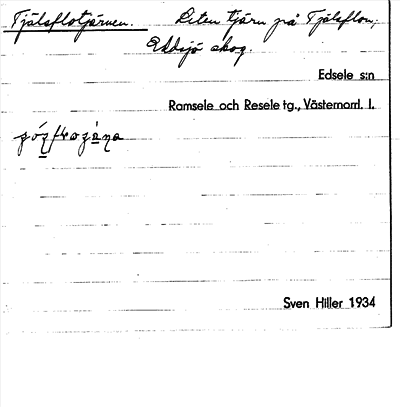 Tjälsflotjärnen. Liten tjärn på Tjälsflon,
Eldsjö skog.
Edsele s:n
Ramsele och Resele tg., Västernorrl. l.
Sven Hiller 1934